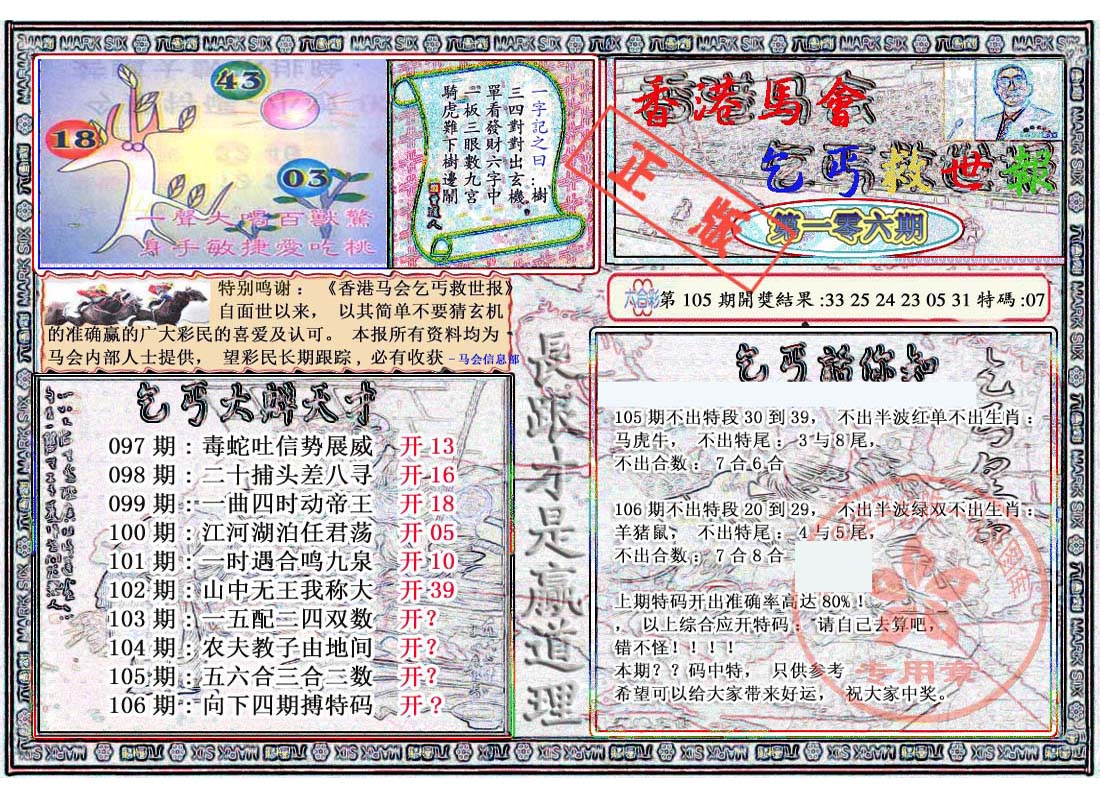 MARK SIX
43
18
03
一聲大喝百獸驚
身手敏捷愛吃桃
一字記之曰:樹
三四對對出玄機,
單看發財六字中
一板三眼數九宮
騎虎難下樹邊鬧
香港馬會
乞丐救世報
第一零六期
正版
特别鸣谢：《香港马会乞丐救世报》
自面世以来， 以其简单不要猜玄机
的准确赢的广大彩民的喜爱及认可。 本报所有资料均为
马会内部人士提供， 望彩民长期跟踪，必有收获
-马会信息部
六合彩 第 105 期開獎結果 :33 25 24 23 05 31 特碼 :07
乞丐大辦天才
097 期：毒蛇吐信势展威 开 13
098 期：二十捕头差八寻 开 16
099 期：一曲四时动帝王 开 18
100 期：江河湖泊任君荡 开 05
101 期：一时遇合鸣九泉 开 10
102 期：山中无王我称大 开 39
103 期：一五配二四双数 开？
104 期：农夫教子由地间 开？
105 期：五六合三合二数 开？
106 期：向下四期搏特码 开？
長跟才是赢道理
乞丐話你知
105 期不出特段 30 到 39， 不出半波红单不出生肖：
马虎牛， 不出特尾： 3 与 8 尾，
不出合数：7 合 6 合
106 期不出特段 20 到 29， 不出半波绿双不出生肖：
羊猪鼠， 不出特尾： 4 与 5 尾，
不出合数：7 合 8 合
上期特码开出准确率高达 80%！
， 以上综合应开特码： 请自己去算吧，
错不怪！！！！
本期？？码中特， 只供参考
希望可以给大家带来好运， 祝大家中奖。
专用章